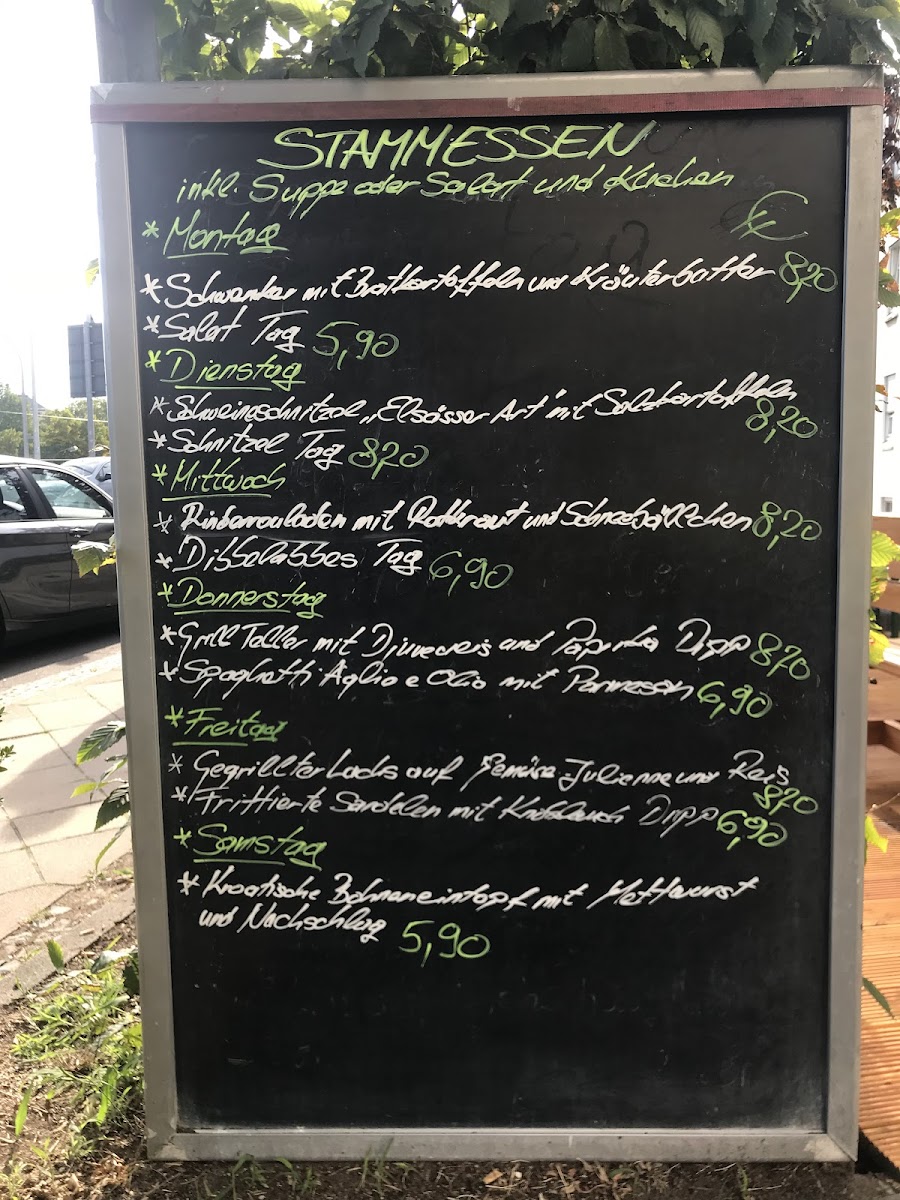 STAMMESSEN
inkl. Suppe oder Salat und Kuchen
€
* Montag
* Schwenker mit Bratkartoffeln und Kräuterbutter 8,20
* Salat Tag 5,90
* Dienstag
* Schweineschnitzel „Elsässer Art" mit Salzkartoffeln 8,20
* Schnitzel Tag 8,20
* Mittwoch
* Rinderrouladen mit Rotkraut und Schneebällchen 8,20
* Dibbelabbes Tag 6,90
* Donnerstag
* Grill Teller mit Djuvecreis und Paprika Dipp 8,20
* Spaghetti Aglio e Olio mit Parmesan 6,90
* Freitag
* Gegrillter Lachs auf Gemüse Julienne und Reis 8,20
* Frittierte Sardelen mit Knoblauch Dipp 6,90
* Samstag
* Kroatische Bohneneintopf mit Mettwurst
und Nachschlag 5,90